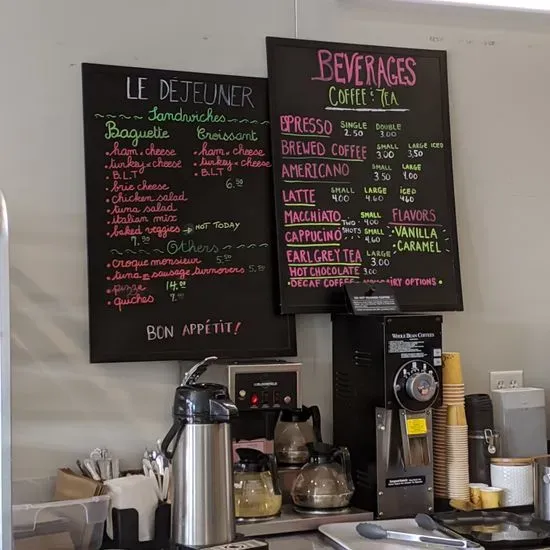 LE DÉJEUNER
Sandwiches
Baguette
• ham & cheese
• turkey & cheese
• B.L.T
• brie cheese
• chicken salad
• tuna salad
• italian mix
• baked veggies → NOT TODAY
7.50
Croissant
• ham & cheese
• turkey & cheese
• B.L.T
6.50
Others
• croque monsieur 5.50
• tuna or sausage turnovers 5.50
• pizza 14.00
• quiches
BON APPÉTIT!
BEVERAGES
COFFEE & TEA
ESPRESSO SINGLE 2.50 DOUBLE 3.00
BREWED COFFEE SMALL 3.00 LARGE 3.50 ICED
AMERICANO SMALL 3.50 LARGE 4.00
LATTE SMALL 4.00 LARGE 4.60 ICED 4.60
MACCHIATO TWO SHOTS SMALL 4.00
CAPPUCINO SMALL 4.60
FLAVORS
• VANILLA
CARAMEL
EARL GREY TEA LARGE 3.00
HOT CHOCOLATE 3.00
• DECAF COFFEE • DAIRY OPTIONS
WHOLE BEAN COFFEE
BLOOMFIELD